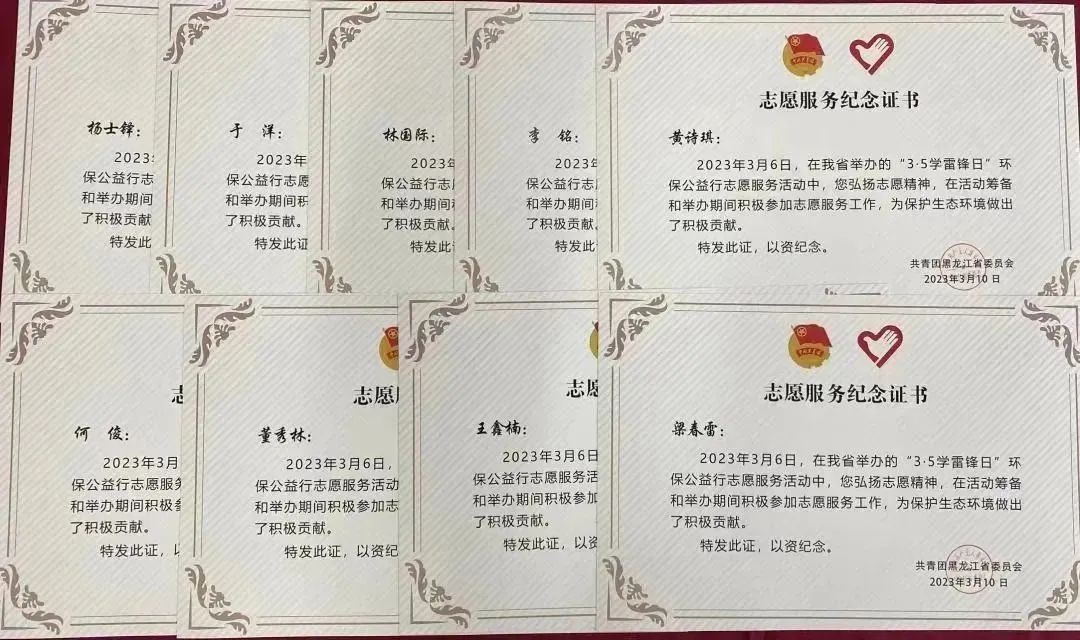 杨士铎：
2023年
保公益行志
和举办期间
了积极贡献
特发此
于 洋：
2023年
保公益行志愿
和举办期间积
了积极贡献
特发此证
林国际：
2023年
保公益行志愿
和举办期间积
了积极贡献。
特发此证
李 铭：
2023年
保公益行志愿
和举办期间积
了积极贡献
特发此证
志愿服务纪念证书
黄诗琪：
2023年3月6日，在我省举办的“3·5学雷锋日”环
保公益行志愿服务活动中，您弘扬志愿精神，在活动筹备
和举办期间积极参加志愿服务工作，为保护生态环境做出
了积极贡献。
特发此证，以资纪念。
共青团黑龙江省委员会
2023年3月10日
志
何 俊：
2023年3月
保公益行志愿服务
和举办期间积极参
了积极贡献。
特发此证，以
志愿
董秀林：
2023年3月6日，
保公益行志愿服务活动
和举办期间积极参加志
了积极贡献。
特发此证，以资纪
志愿
王鑫楠：
2023年3月6日
保公益行志愿服务活
和举办期间积极参加
了积极贡献。
特发此证，以资
志愿服务纪念证书
梁春雷：
2023年3月6日，在我省举办的“3·5学雷锋日”环
保公益行志愿服务活动中，您弘扬志愿精神，在活动筹备
和举办期间积极参加志愿服务工作，为保护生态环境做出
了积极贡献。
特发此证，以资纪念。
共青团黑龙江省委员会
2023年3月10日